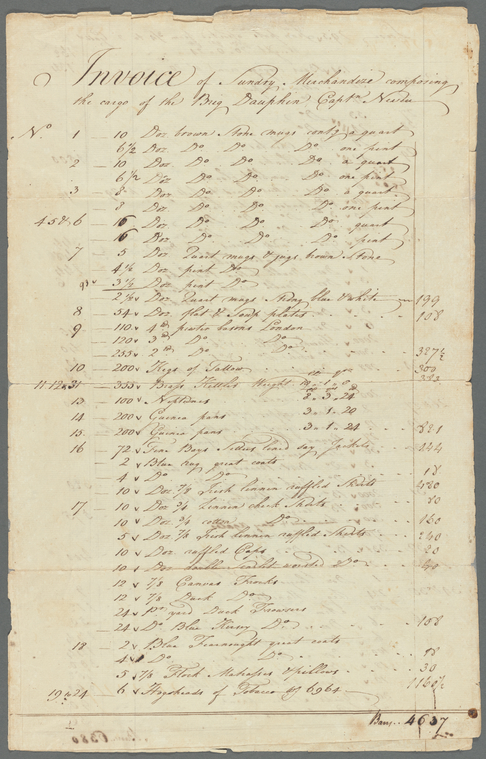 Invoice of Sundry Merchandize composing
the cargo of the Brig Dauphin Captn
No 1 — 10 Doz brown Stone mugs conty a quart
6 1/2 Doz Do Do Do one pint
2 — 10 Doz Do Do Do a quart
6 1/2 Doz Do Do Do one pint
3 — 8 Doz Do Do Do a quart
8 Doz Do Do Do one pint
4 5 & 6 — 16 Doz Do Do Do quart
16 Doz Do Do Do pint
7 — 5 Doz Quart mugs & jugs brown Stone
4 1/2 Doz pint Do
3 1/2 Doz pint Do
Doz Quart mugs blue & white — 199
8 — 54 Doz flat & Soup plates 108
9 — 110 4 lb pewter basons London
120 3 lb Do Do
255 2 lb Do Do 327 1/2
10 — 200 Kegs of Tallow 300
11.12 — 355 Brass Kettles Weight
13 — 100 Neptunes 2 " 3 " 24
14 — 200 Guinea pans 3 " 1 " 20
15 — 200 Guinea pans 3 " 1 " 24 821
16 — 72 Fine Boys 244
2 Blue great coats
4 Do Do 18
10 Doz 7/8 Irish linnen ruffled Shirts 480
17 — 10 Doz 3/4 Linnen check Shirts 80
10 Doz 3/4 cotton Do 160
5 Doz 7/8 Irish Linnen ruffled Shirts 240
10 Doz ruffled Caps 20
10 Doz double Scarlet worsted Do 40
12 7/8 Canvas Frocks
12 7/8 Duck Do
24 pr yard Duck Trowsers
24 Do Blue Kersey Do 158
18 — 2 Blue Fearnought great coats
4 Do Do 18
5 7/8 Flock Matrasses & pillows 30
19 @ 24 — 6 Hogsheads of Tobacco 6964 1160 1/2
Bars.. 4637